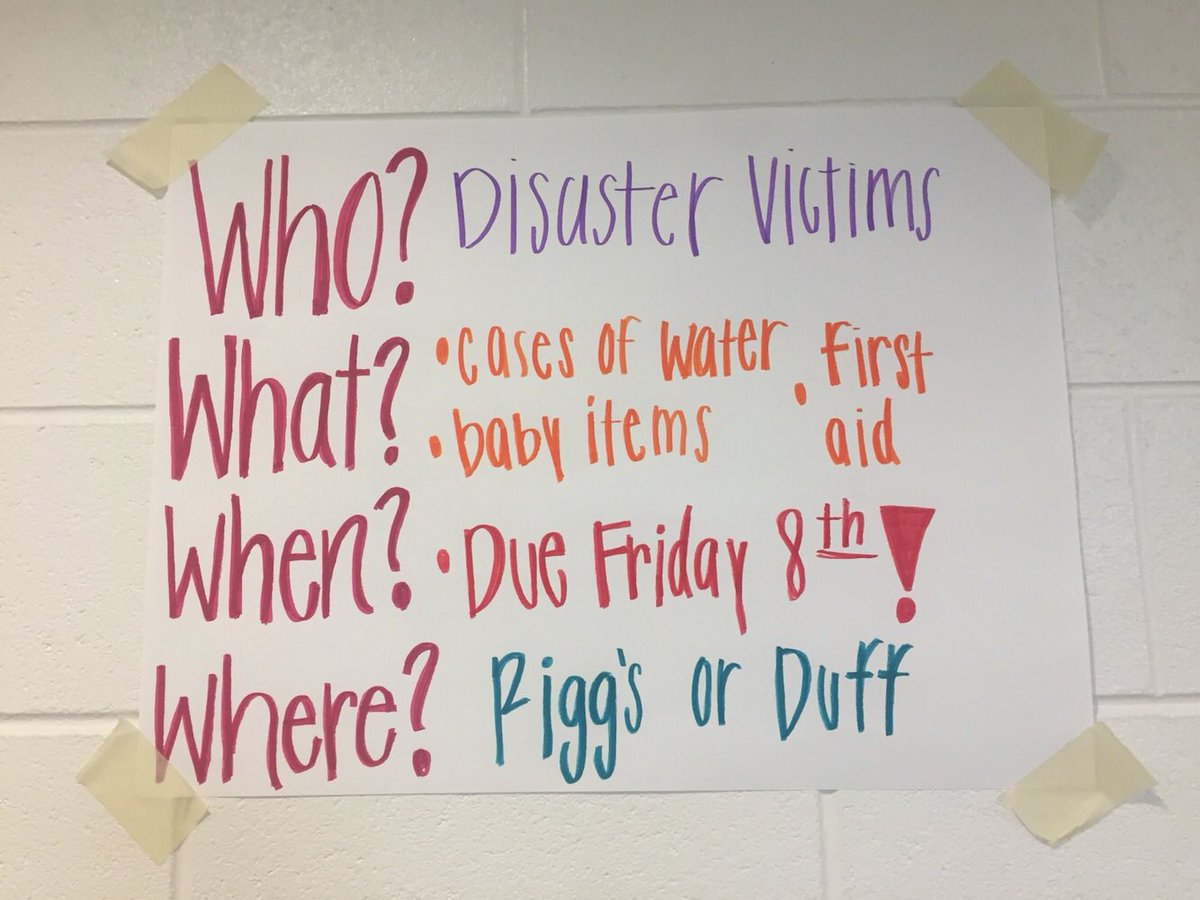 Who? Disaster Victims
What? • cases of water • First aid
• baby items
When? • Due Friday 8th!
Where? Rigg's or Duff